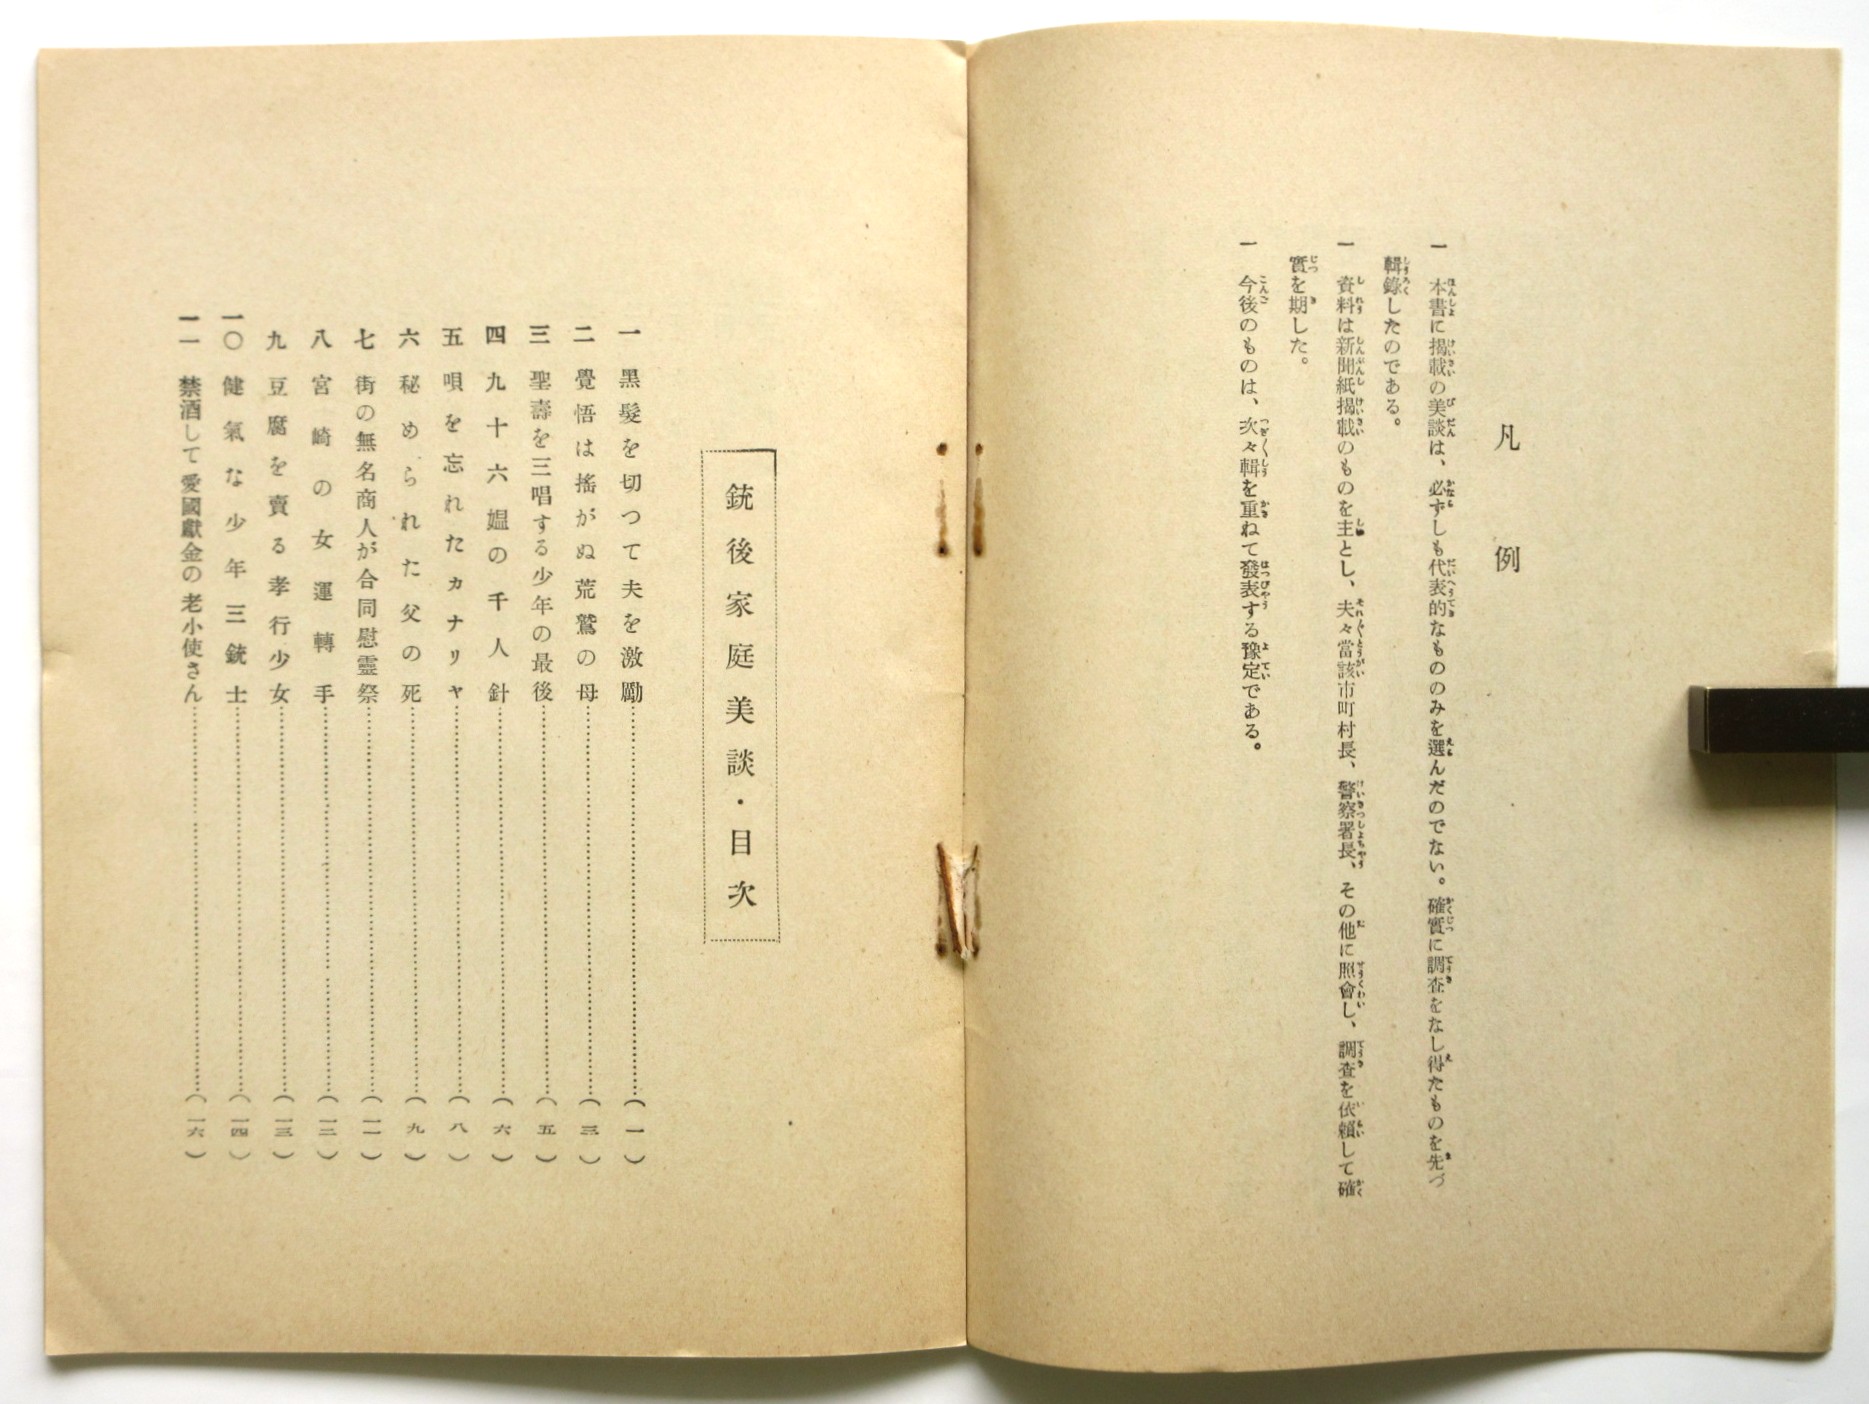 凡例
一 本書に掲載の美談は、必ずしも代表的なもののみを選んだのでない。確實に調査をなし得たものを先づ
輯錄したのである。
一 資料は新聞紙掲載のものを主とし、夫々當該市町村長、警察署長、その他に照會し、調査を依賴して確
實を期した。
一 今後のものは、次々輯を重ねて發表する豫定である。
銃後家庭美談・目次
一 黑髮を切つて夫を激勵……(一)
二 覺悟は搖がぬ荒鷲の母……(三)
三 聖壽を三唱する少年の最後……(五)
四 九十六媼の千人針……(六)
五 唄を忘れたカナリヤ……(八)
六 秘められた父の死……(九)
七 街の無名商人が合同慰靈祭……(一一)
八 宮崎の女運轉手……(一二)
九 豆腐を賣る孝行少女……(一三)
一〇 健氣な少年三銃士……(一四)
一一 禁酒して愛國獻金の老小使さん……(一六)